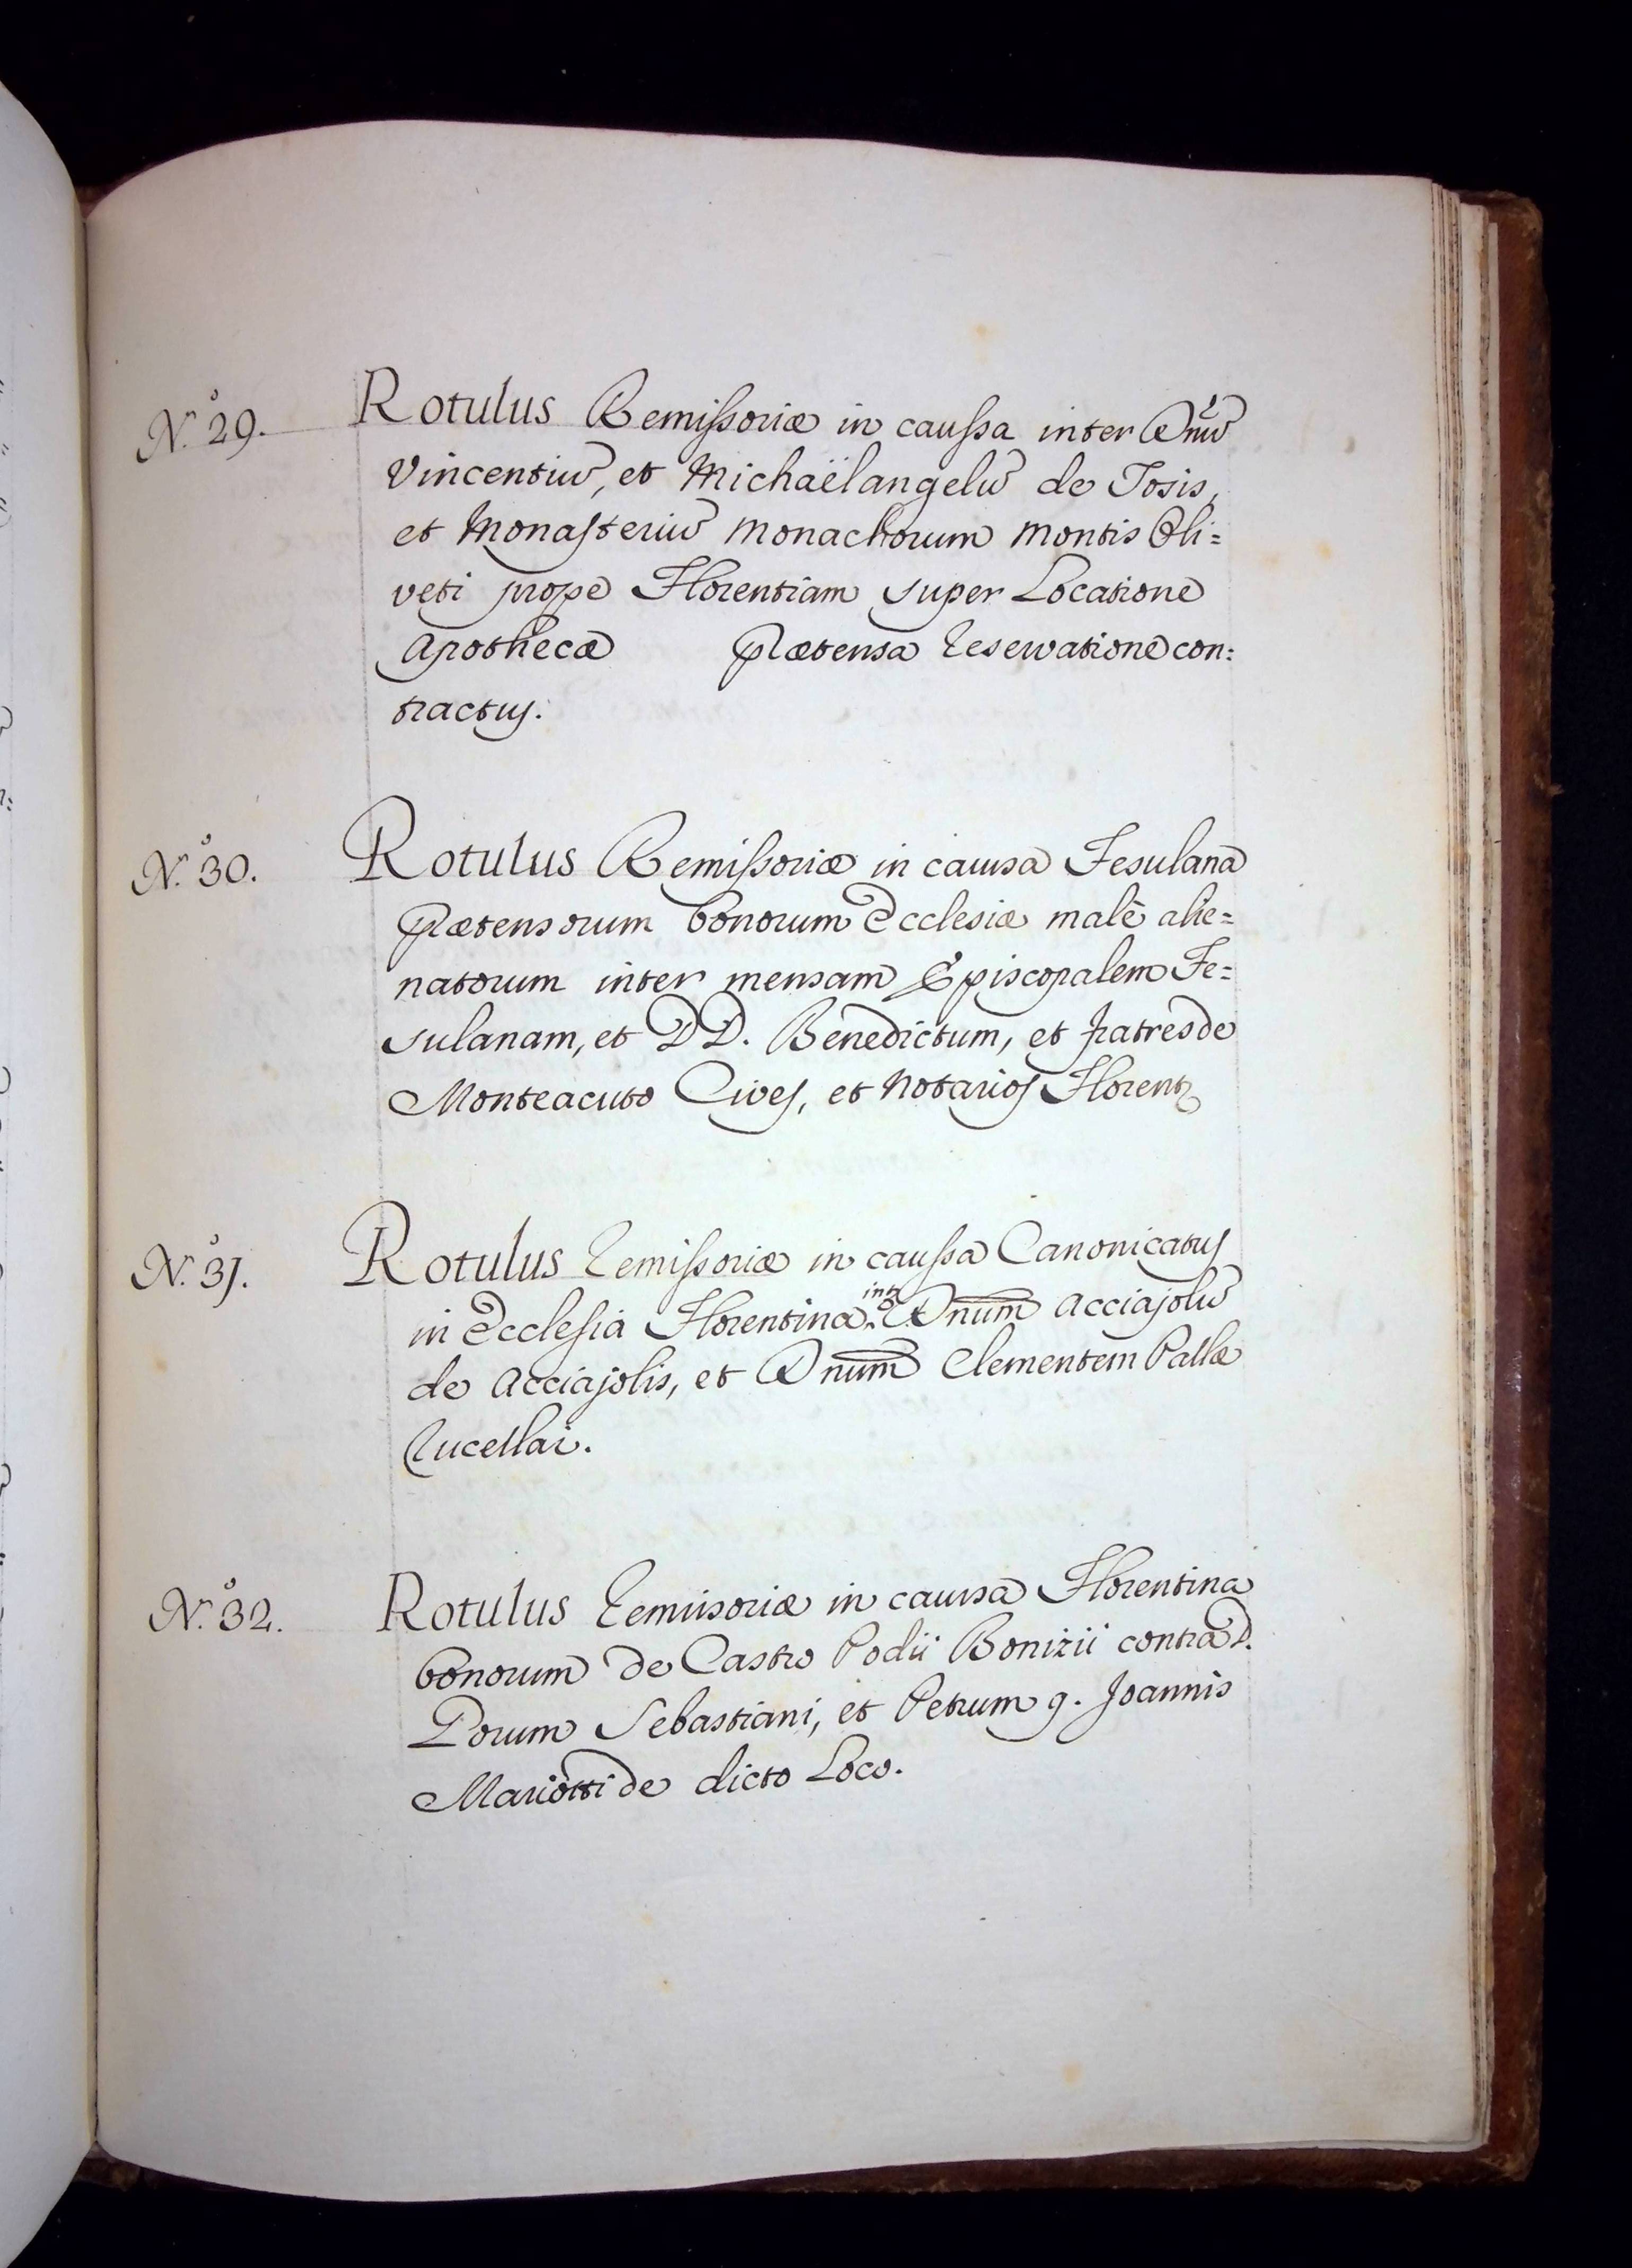 N.º 29. Rotulus Remissoriæ in caussa inter Dnũ
Vincentiũ, et Michaëlangelũ de Tosis,
et Monasteriũ Monachorum Montis Oli=
veti prope Florentiam super Locatione
Apothecæ prætensa reservatione con=
tractus.
N.º 30. Rotulus Remissoriæ in causa Fesulana
prætensorum bonorum Ecclesiæ malè alie=
natorum inter mensam Episcopalem Fe=
sulanam, et DD. Benedictum, et fratres de
Monteacuto Cives, et Notarios Florent
N.º 31. Rotulus Remissoriæ in caussa Canonicatus
in Ecclesia Florentina inter Dnum Acciajolũ
de Acciajolis, et Dnum Clementem Pallæ
Rucellai.
N.º 32. Rotulus Remissoriæ in causa Florentina
bonorum de Castro Podii Bonizii contra D.
Dorum Sebastiani, et Petrum q. Joannis
Mariotti de dicto Loco.